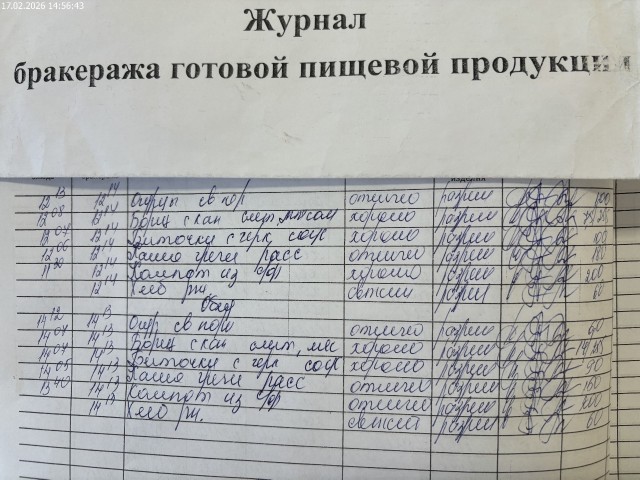 17.02.2026 14:56:43
Журнал
бракеража готовой пищевой продукции
изделия
12 13 12 14 Огурц св пор отлично разреш 100
12 08 12 14 Борщ с кап смет, мясом хорошо разреш
12 04 12 14 Биточки с черк соус хорошо разреш 100
12 06 12 14 Каша гречн расс отлично разреш 180
11 30 12 14 Компот из с/фр хорошо разреш 200
12 14 Хлеб рж. свежий разреш 60
Обед
14 12 14 13 Огур св пор отлично разреш 60
14 07 14 13 Борщ с кап смет, мяс хорошо разреш
14 04 14 13 Биточки с черк соус хорошо разреш 90
14 05 14 13 Каша гречн расс отлично разреш 150
13 40 14 13 Компот из с/фр отлично разреш 200
14 13 Хлеб рж. свежий разреш 60